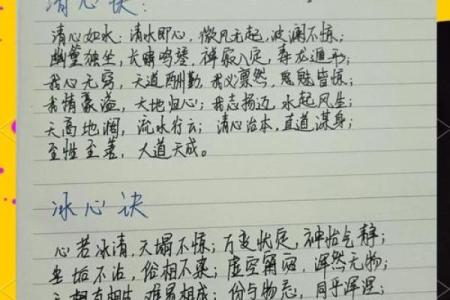 清心诀：
清心如水；清水即心，微风无起，波澜不惊；
幽篁独坐，长啸鸣琴，禅寂入定，毒龙遁形；
我心无窍，天道酬勤，我义凛然，鬼魅皆惊；
我情豪溢，天地归心；我志扬迈，水起风生；
天高地阔，流水行云；清心治本，直道谋身；
至性至善，大道天成。
冰心诀
心若冰清，天塌不惊；万变犹定，神怡气静；
尘垢不沾，俗相不染；虚空甯宓，浑然无物；
无相生，难易相成；份与物忘，同乎浑涅；